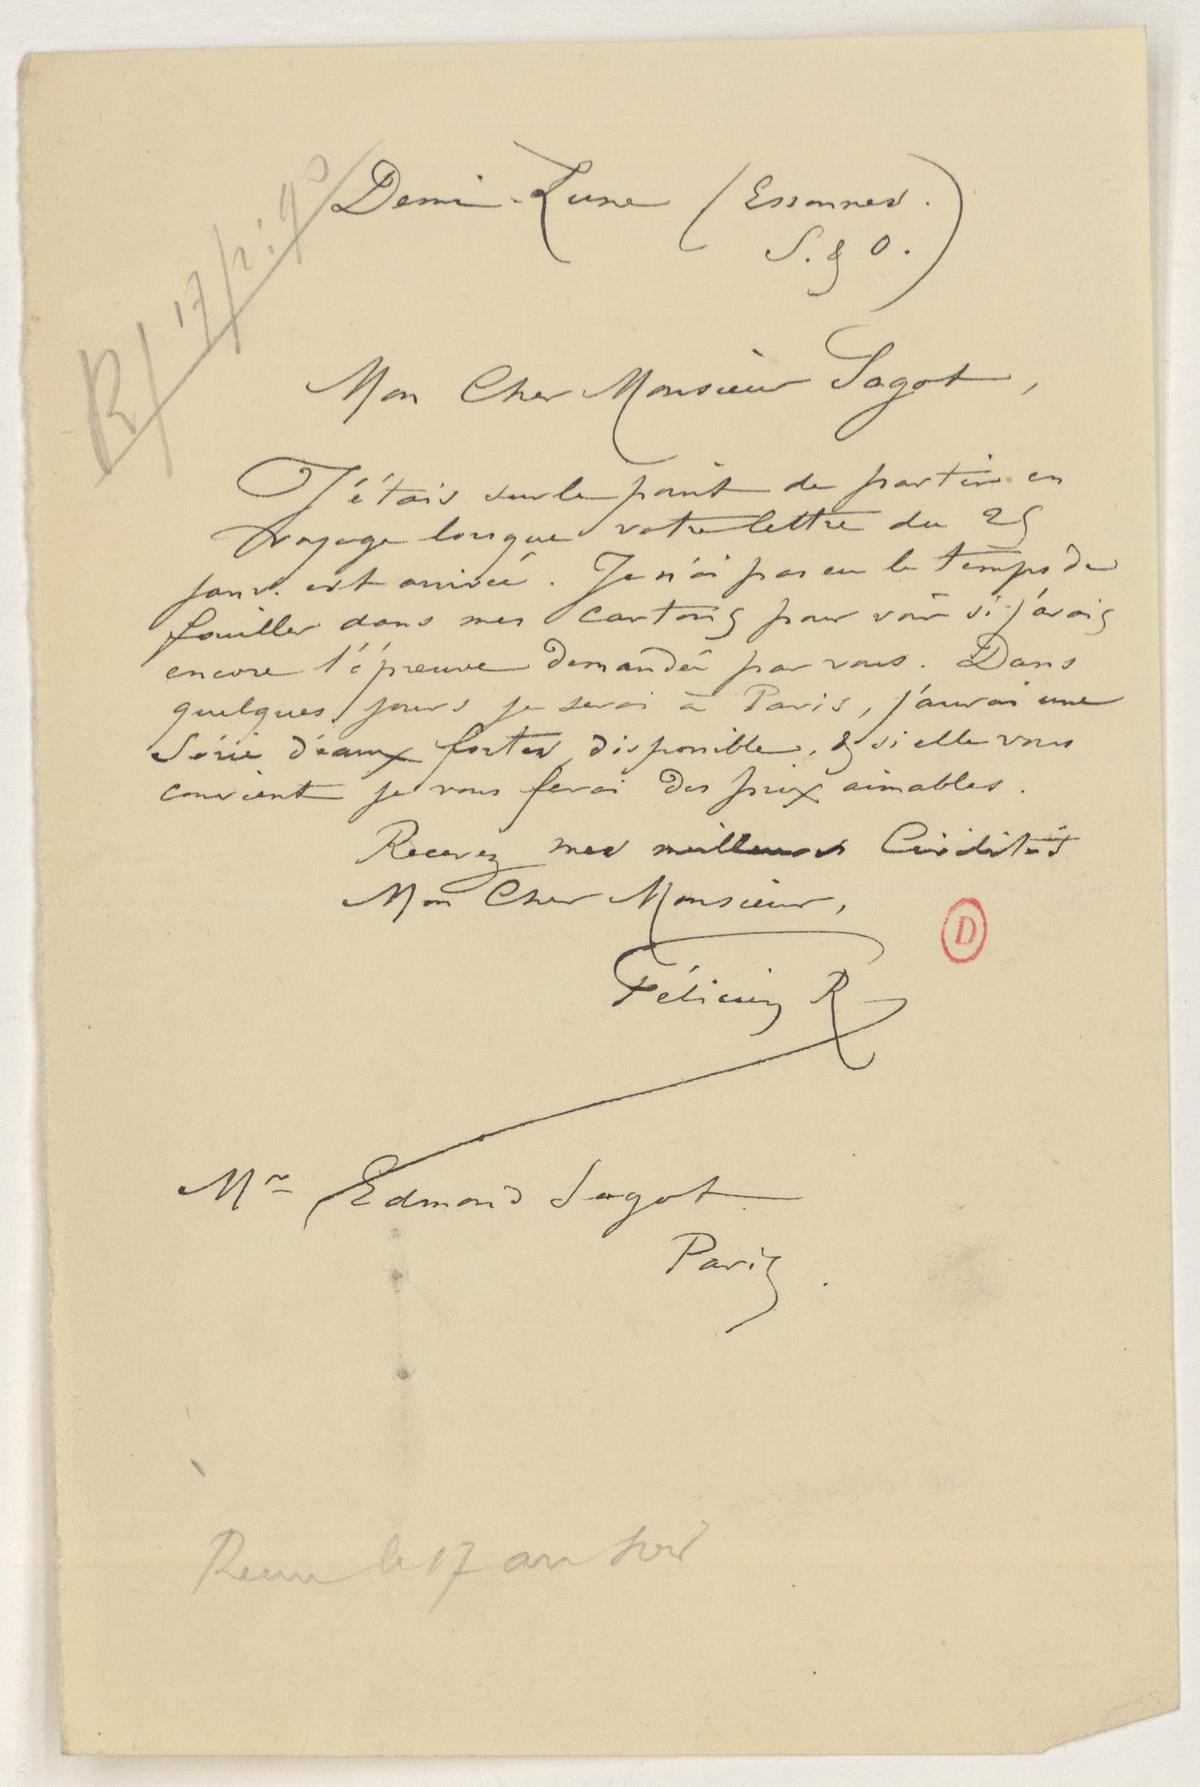 R/ 17/2:90
Demi-Lune (Essonnes.
S. & O.)
Mon Cher Monsieur Sagot,
J'étais sur le point de partir en
voyage lorsque votre lettre du 25
janv. est arrivée. Je n'ai pas eu le temps de
fouiller dans mes cartons pour voir si j'avais
encore l'épreuve demandée par vous. Dans
quelques jours je serai à Paris, j'aurai une
Série d'eaux fortes disponible, & si elle vous
convient je vous ferai des prix aimables.
Recevez mes meilleures
Mon Cher Monsieur,
Félicien R
D
Mr Edmond Sagot
Paris.
le 17 au soir